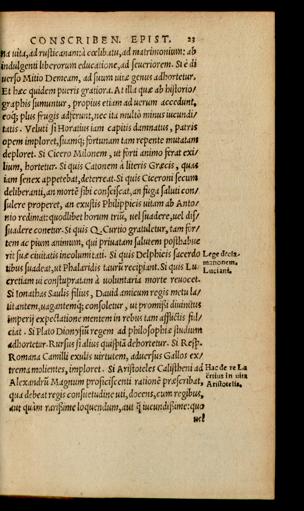 CONSCRIBEN. EPIST. 23
na uita, ad rusticanam: à cœlibatu, ad matrimonium: ab
indulgenti liberorum educatione, ad seueriorem. Si è di
uerso Mitio Demeam, ad suum uitæ genus adhortetur.
Et hæc quidem pueris gratiora. At illa quæ ab historio/
graphis sumuntur, propius etiam ad uerum accedunt,
eoq́; plus frugis adferunt, nec ita multò minus iucundi/
tatis. Veluti si Horatius iam capitis damnatus, patris
opem imploret, suamq́; fortunam tam repente mutatam
deploret. Si Cicero Milonem, ut forti animo ferat exi/
lium, hortetur. Si quis Catonem à literis Græcis, quas
iam senex appetebat, deterreat. Si quis Ciceroni secum
deliberanti, an mortē sibi consciscat, an fuga saluti con/
sulere properet, an exustis Philippicis uitam ab Anto/
nio redimat: quodlibet horum triũ, uel suadere, uel dis/
suadere conetur. Si quis Q. Curtio gratuletur, tam for/
tem ac pium animum, qui priuatam salutem posthabue
rit suæ ciuitatis incolumitati. Si quis Delphicis sacerdo
tibus suadeat, ut Phalaridis taurũ recipiant. Si quis Lu
cretiam ui constupratam à uoluntaria morte reuocet.
Si Ionathas Saulis filius, Dauid amicum regis metu la/
titantem, uagantemq́; consoletur, ut promissi diuinitus
imperij expectatione mentem in rebus tam afflictis ful/
ciat. Si Plato Dionysiũ regem ad philosophiæ studium
adhortetur. Rursus si alius quispiã dehortetur. Si Resp.
Romana Camilli exulis uirtutem, aduersus Gallos ex/
trema molientes, imploret. Si Aristoteles Calistheni ad
Alexandrũ Magnum proficiscenti rationē præscribat,
qua debeat regis consuetudine uti, docens, cum regibus,
aut quàm rarissime loquendum, aut q̃ iucundissime: quo
uel
Lege decla-
mationem,
Luciani.
Hac de re La
ërtius in uita
Aristotelis.